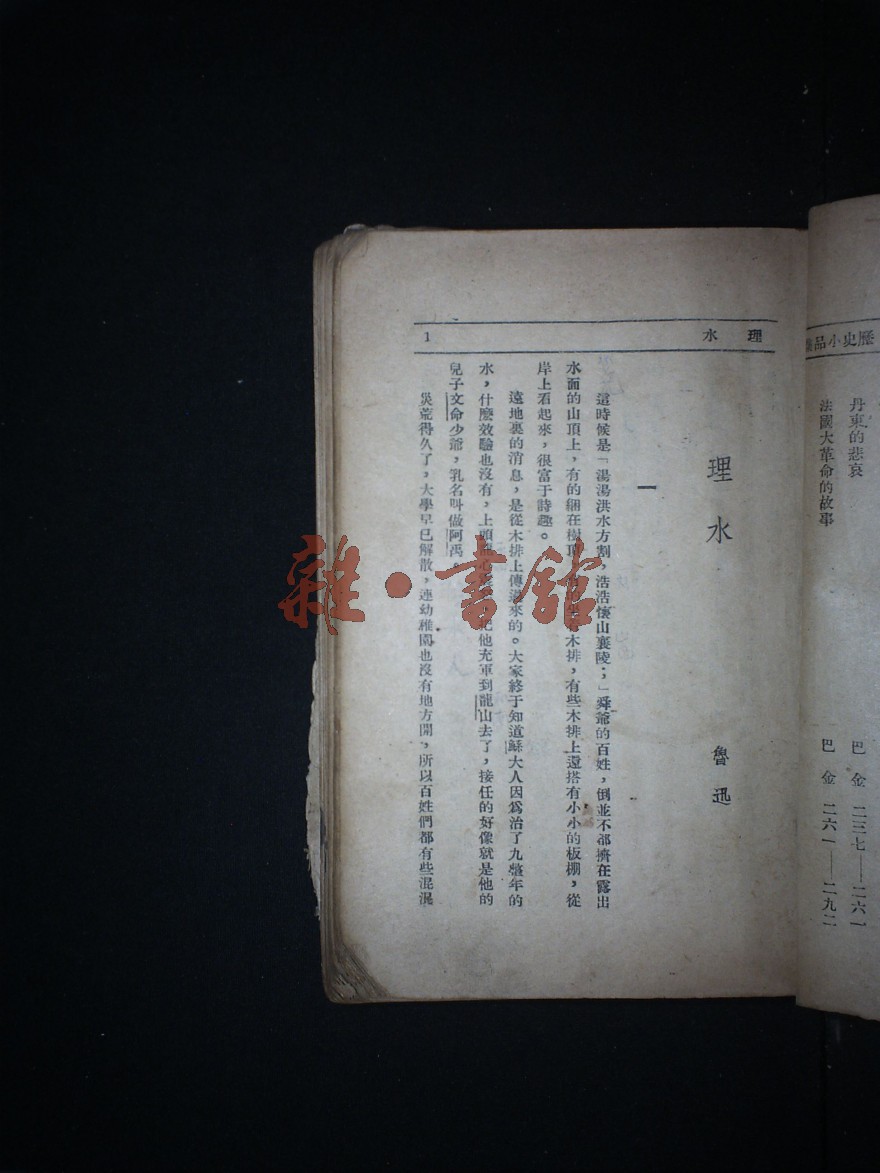 歷史小品
丹東的悲哀 巴金 二三七——二六一
法國大革命的故事 巴金 二六一——二九二
理水
1
理水
魯迅
一
這時候是「湯湯洪水方割,浩浩懷山襄陵;」舜爺的百姓,倒並不都擠在露出
水面的山頂上,有的綑在樹頂,木排,有些木排上還搭有小小的板棚,從
岸上看起來,很富于詩趣。
遠地裏的消息,是從木排上傳過來的。大家終于知道鯀大人因爲治了九整年的
水,什麼效驗也沒有,上頭心把他充軍到龍山去了,接任的好像就是他的
兒子文命少爺,乳名叫做阿禹。
災荒得久了,大學早已解散,連幼稚園也沒有地方開,所以百姓們都有些混混
雜·書館